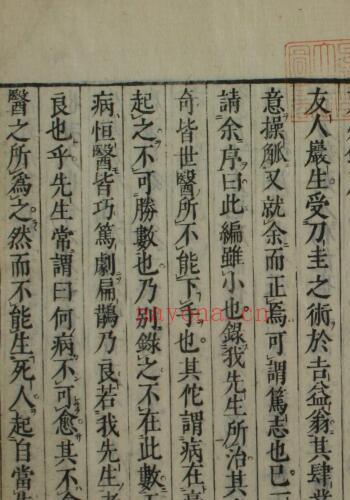 友人嚴生受刀圭之術於吉益翁其肆業
意操觚又就余而正焉可謂篤志也已
請余序曰此編雖小也錄我先生所治其
奇皆世醫所不能下手也其佗謂病在
起之不可勝數也乃別錄之不在此數
病恒醫皆巧篤劇扁鵲乃良若我先生
良也乎先生常謂曰何病不可愈其不
醫之所為之然而不能生死人起自當生